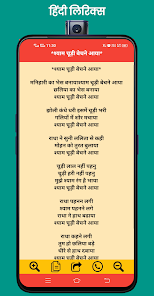 हिंदी लिरिक्स
11:30
"श्याम चूड़ी बेचने आया"
मनिहारी का भेस बनायाश्याम चूड़ी बेचने आया
छलिया का भेस बनाया
श्याम चूड़ी बेचने आया
झोली कंधे धरी इसमें चूड़ी भरी
गलियों में शोर मचाया
श्याम चूड़ी बेचने आया
राधा ने सुनी ललिता से कही
मोहन को तुरंत बुलाया
श्याम चूड़ी बेचने आया
चूड़ी लाल नहीं पहनु
चूड़ी हरी नहीं पहनु
मुझे श्याम रंग है भाया
श्याम चूड़ी बेचने आया
राधा पहनन लगी
श्याम पहनने लगे
राधा ने हाथ बढाया
श्याम चूड़ी बेचने आया
राधा कहने लगी
तुम हो छलिया बड़े
धीरे से हाथ दबाया
श्याम चूड़ी बेचने आया